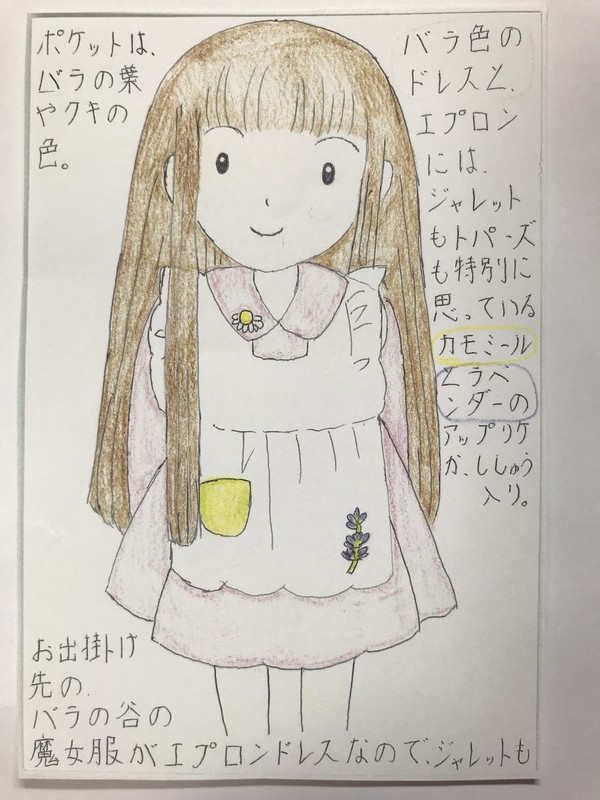 ポケットは、
バラの葉
やクキの
色。
バラ色の
ドレスと、
エプロン
には、
ジャレット
もトパーズ
も特別に
思っている
カモミール
とラベ
ンダーの
アップリケ
か、ししゅう
入り。
お出掛け
先の、
バラの谷の
魔女服がエプロンドレスなので、ジャレットも